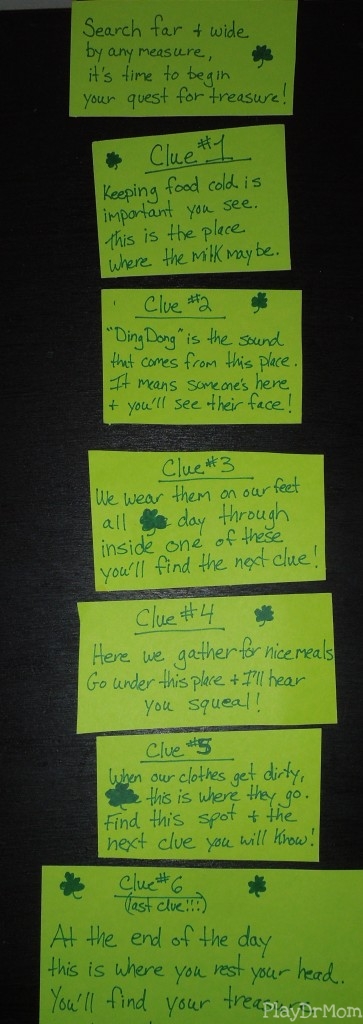 Search far + wide
by any measure,
it's time to begin
your quest for treasure!
Clue #1
Keeping food cold is
important you see.
This is the place
where the milk may be.
Clue #2
"Ding Dong" is the sound
that comes from this place.
It means someone's here
+ you'll see their face!
Clue #3
We wear them on our feet
all day through
inside one of these
you'll find the next clue!
Clue #4
Here we gather for nice meals
Go under this place + I'll hear
you squeal!
Clue #5
When our clothes get dirty,
this is where they go.
Find this spot + the
next clue you will know!
Clue #6
(last clue!!!)
At the end of the day
this is where you rest your head.
You'll find your treasure
PlayDrMom